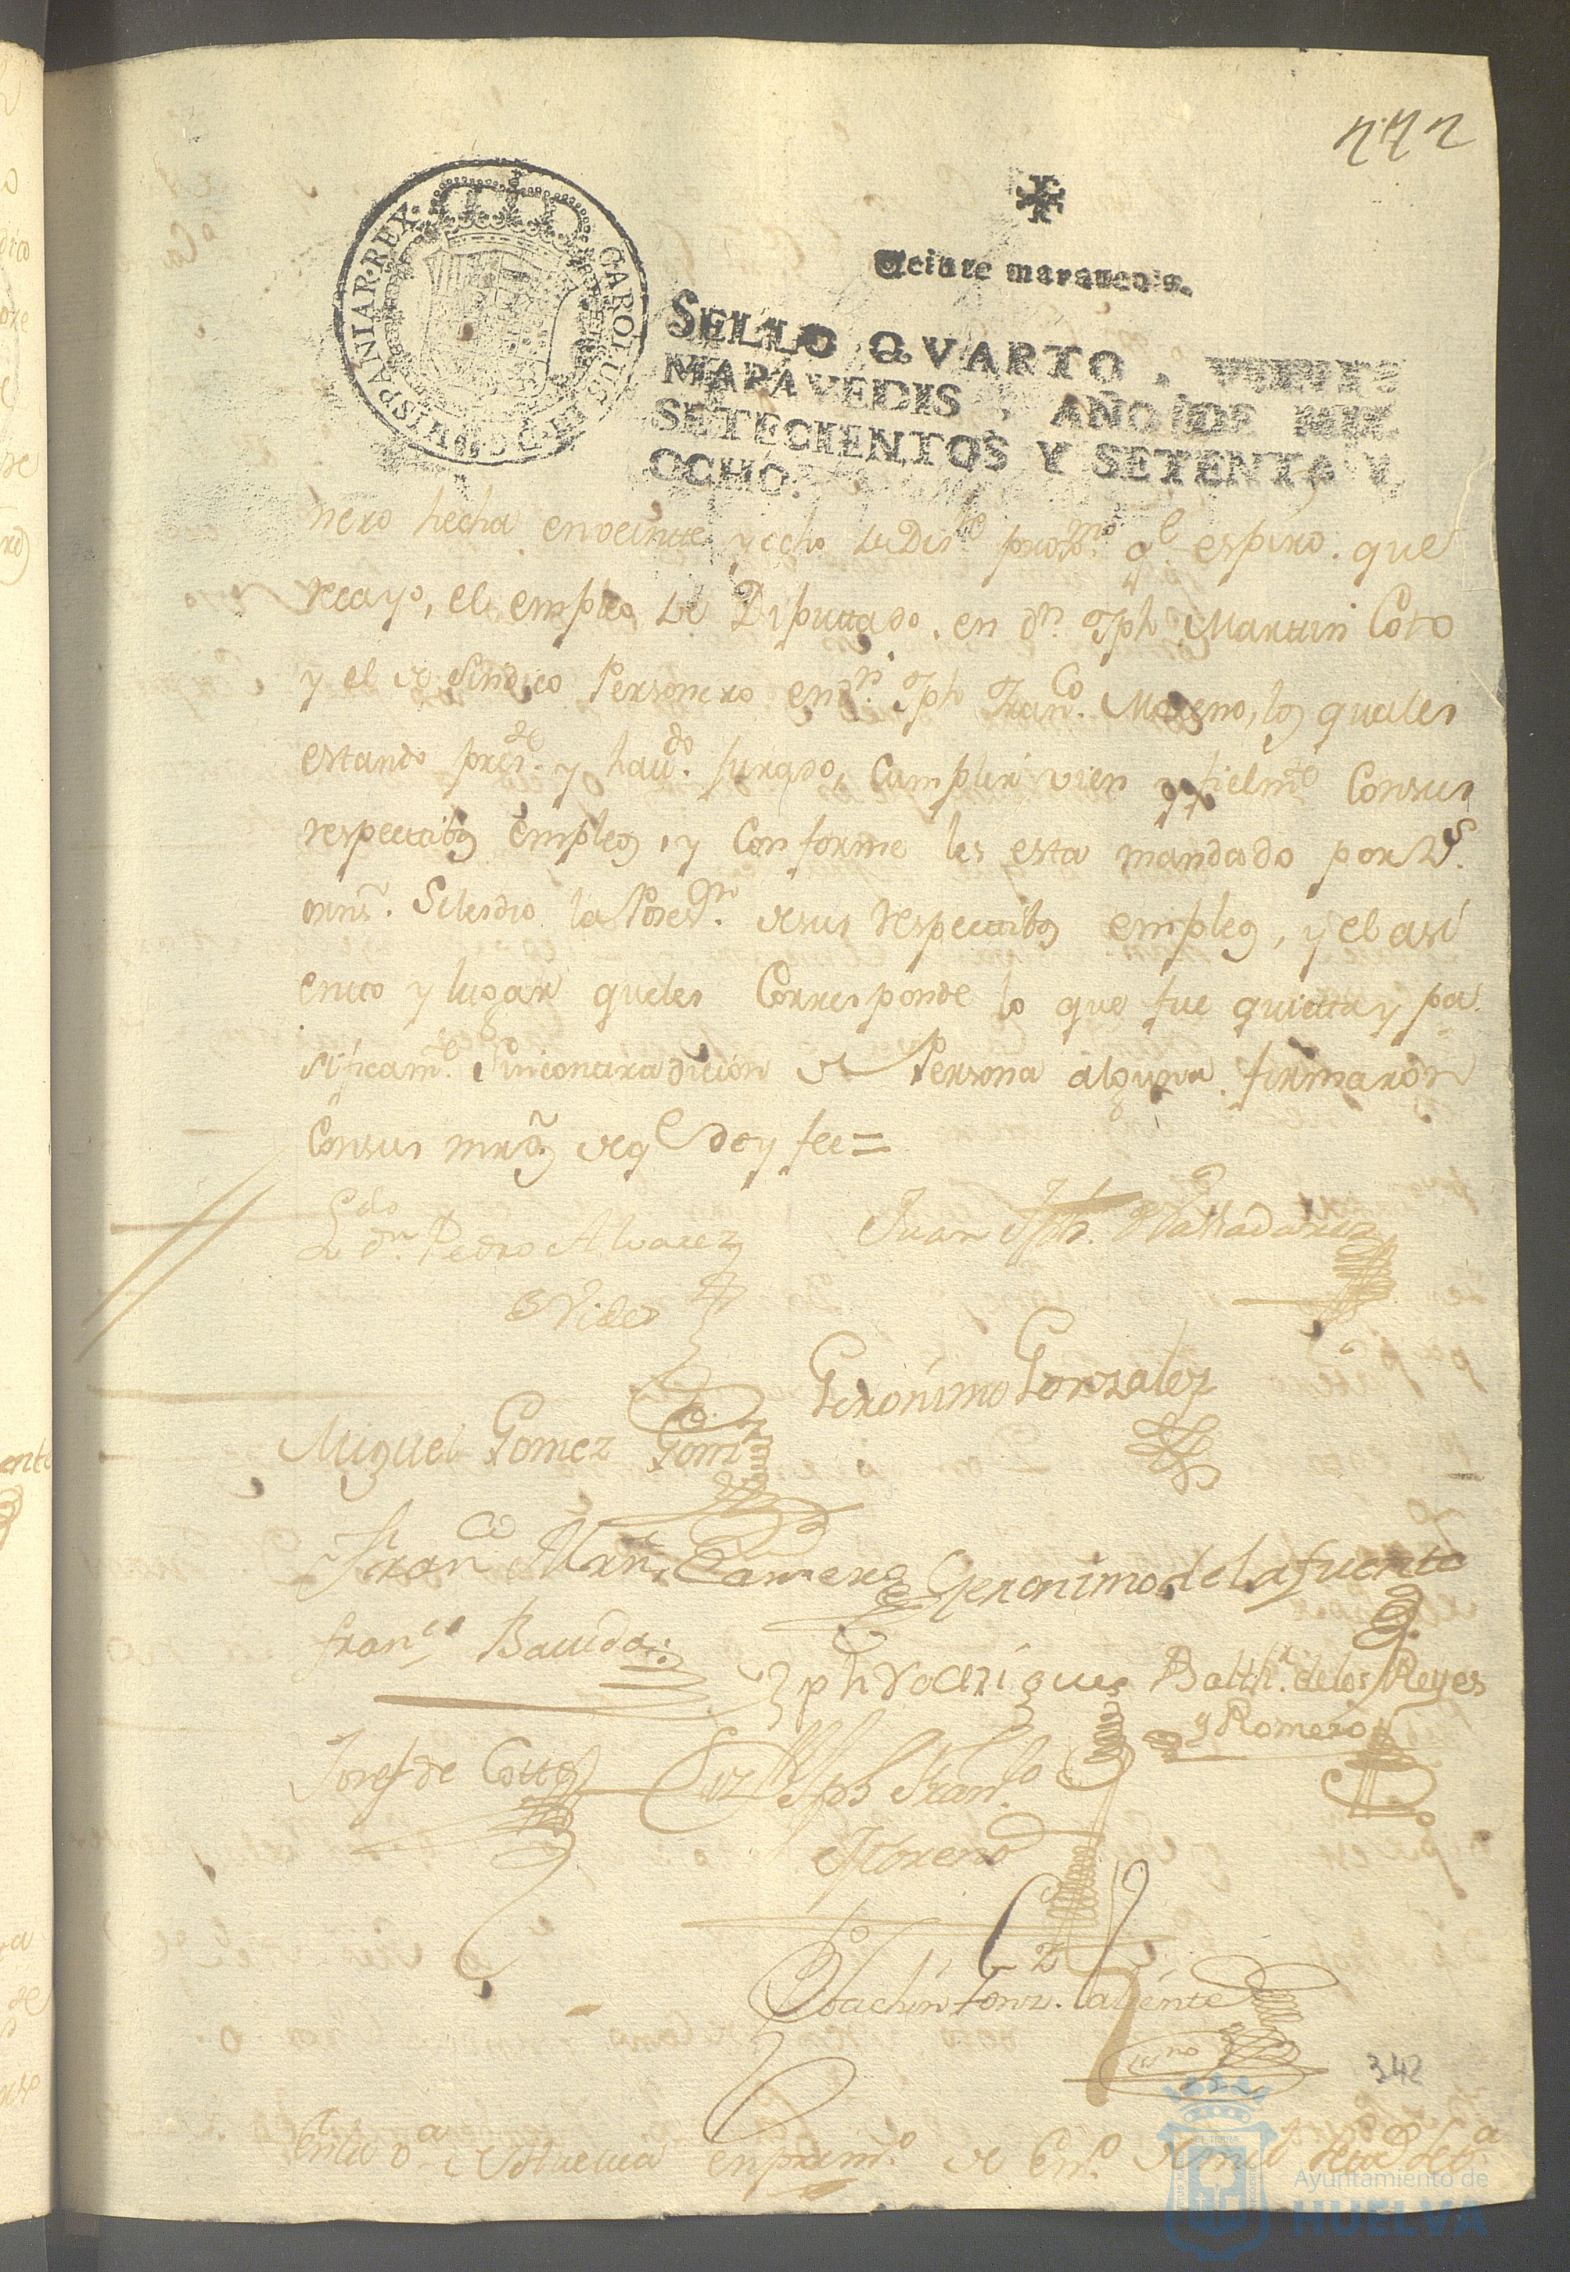 CAROLUS III D G HISPANIAR REX
Veinte maravedis.
SELLO QVARTO, VEINTE
MARAVEDIS, AÑO DE MIL
SETECIENTOS Y SETENTA Y
OCHO.
nero hecha en veinte y ocho de Dizre proxmo qe espiro. que
recayo, el empleo de Diputtado, en dn. Jph Marttin Coto
y el de Sindico Personero en dn. Jph Franco. Moreno, los quales
estando preste. y havdo. jurado, cumplir vien y fielmte Con sus
respecttibos empleos, y Conforme les esta mandado por Ss.
mrns. Se les dio la Posesn. de sus respecttibos empleos, y el asi
entto y lugar que les Corresponde lo que fue quietta y pa
sificamte. Sin conttradicion de Persona alguna firmaron
Con sus mrds de qe doy fee =
Ldo dn. Pedro Alvarez
Juan Jph. Valladares
Geronimo Gonzalez
Miguel Gomez
Franco Mrn. Camera
Geronimo de la fuente
franco Bauida
Jph Rodriguez
Balthr. de los Reyes
y Romero
Josef de Cotto
Jph Franco.
Moreno
Joachin Gonz. Valiente
ssno
342
En la va de Huelva en primo. de Eno. de mil
Ayuntamiento de
HUELVA